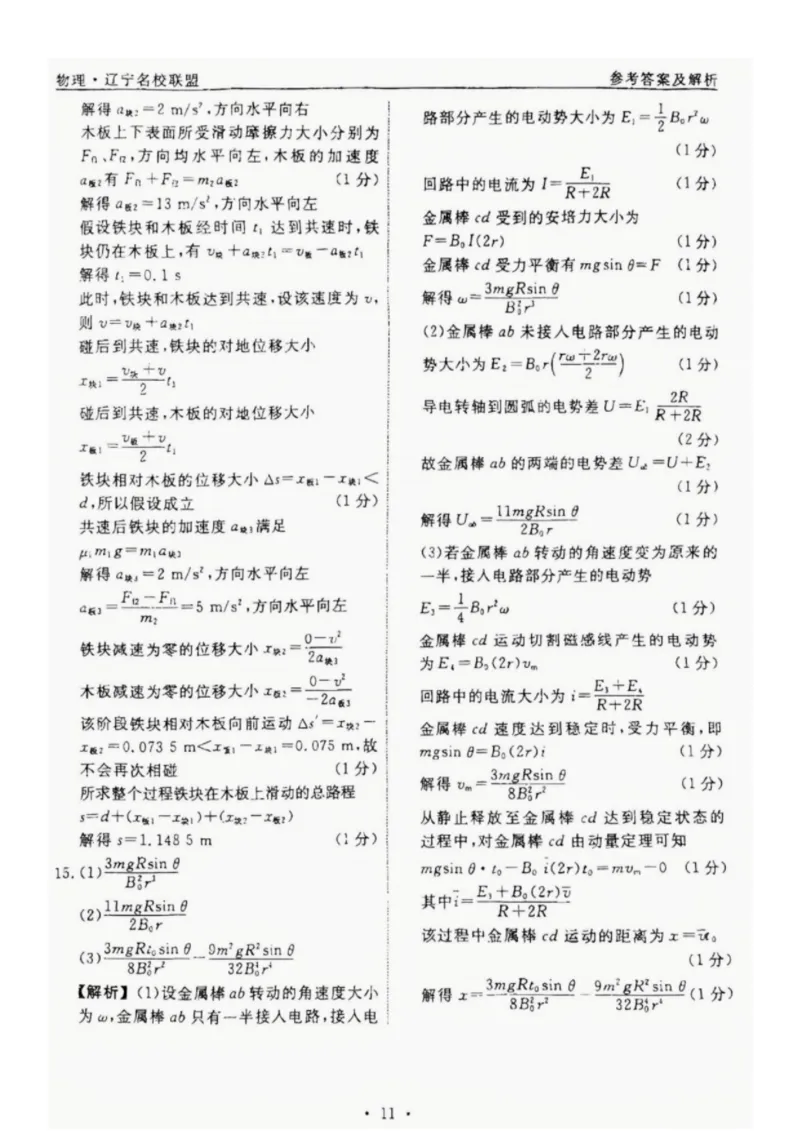 物理·辽宁名校联盟
参考答案及解析
解得 a块2=2 m/s²,方向水平向右
木板上下表面所受滑动摩擦力大小分别为
Ff1、Ff2,方向均水平向左,木板的加速度
a板2有 Ff1+Ff2=m2a板2 (1分)
解得 a板2=13 m/s²,方向水平向左
假设铁块和木板经时间 t1 达到共速时,铁
块仍在木板上,有 v块+a块2t1=v板-a板2t1
解得 t1=0.1 s
此时,铁块和木板达到共速,设该速度为 v,
则 v=v块+a块2t1
碰后到共速,铁块的对地位移大小
x块1=(v块+v)/2 t1
碰后到共速,木板的对地位移大小
x板1=(v板+v)/2 t1
铁块相对木板的位移大小 Δs=x板1-x块1<
d,所以假设成立 (1分)
共速后铁块的加速度 a块3满足
μ1m1g=m1a块3
解得 a块3=2 m/s²,方向水平向左
a板3=(Ff2-Ff1)/m2=5 m/s²,方向水平向左
铁块减速为零的位移大小 x块2=(0-v²)/(2a块3)
木板减速为零的位移大小 x板2=(0-v²)/(-2a板3)
该阶段铁块相对木板向前运动 Δs′=x块2-
x板2=0.073 5 m<x板1-x块1=0.075 m,故
不会再次相碰 (1分)
所求整个过程铁块在木板上滑动的总路程
s=d+(x板1-x块1)+(x块2-x板2)
解得 s=1.148 5 m (1分)
15.(1) 3mgRsin θ/(B0²r³)
(2) 11mgRsin θ/(2B0r)
(3) 3mgRt0sin θ/(8B0²r²) - 9m²gR²sin θ/(32B0⁴r⁴)
【解析】(1)设金属棒 ab 转动的角速度大小
为 ω,金属棒 ab 只有一半接入电路,接入电
路部分产生的电动势大小为 E1=1/2 B0r²ω
(1分)
回路中的电流为 I=E1/(R+2R) (1分)
金属棒 cd 受到的安培力大小为
F=B0I(2r) (1分)
金属棒 cd 受力平衡有 mgsin θ=F (1分)
解得 ω=3mgRsin θ/(B0²r³) (1分)
(2)金属棒 ab 未接入电路部分产生的电动
势大小为 E2=B0r((rω+2rω)/2) (1分)
导电转轴到圆弧的电势差 U=E1 2R/(R+2R)
(2分)
故金属棒 ab 的两端的电势差 Uab=U+E2
(1分)
解得 Uab=11mgRsin θ/(2B0r) (1分)
(3)若金属棒 ab 转动的角速度变为原来的
一半,接入电路部分产生的电动势
E3=1/4 B0r²ω (1分)
金属棒 cd 运动切割磁感线产生的电动势
为 E4=B0(2r)vm (1分)
回路中的电流大小为 i=(E3+E4)/(R+2R)
金属棒 cd 速度达到稳定时,受力平衡,即
mgsin θ=B0(2r)i (1分)
解得 vm=3mgRsin θ/(8B0²r²) (1分)
从静止释放至金属棒 cd 达到稳定状态的
过程中,对金属棒 cd 由动量定理可知
mgsin θ·t0-B0 i̅(2r)t0=mvm-0 (1分)
其中 i̅=(E3+B0(2r)v̅)/(R+2R)
该过程中金属棒 cd 运动的距离为 x=v̅t0
(1分)
解得 x=3mgRt0sin θ/(8B0²r²) - 9m²gR²sin θ/(32B0⁴r⁴) (1分)
· 11 ·